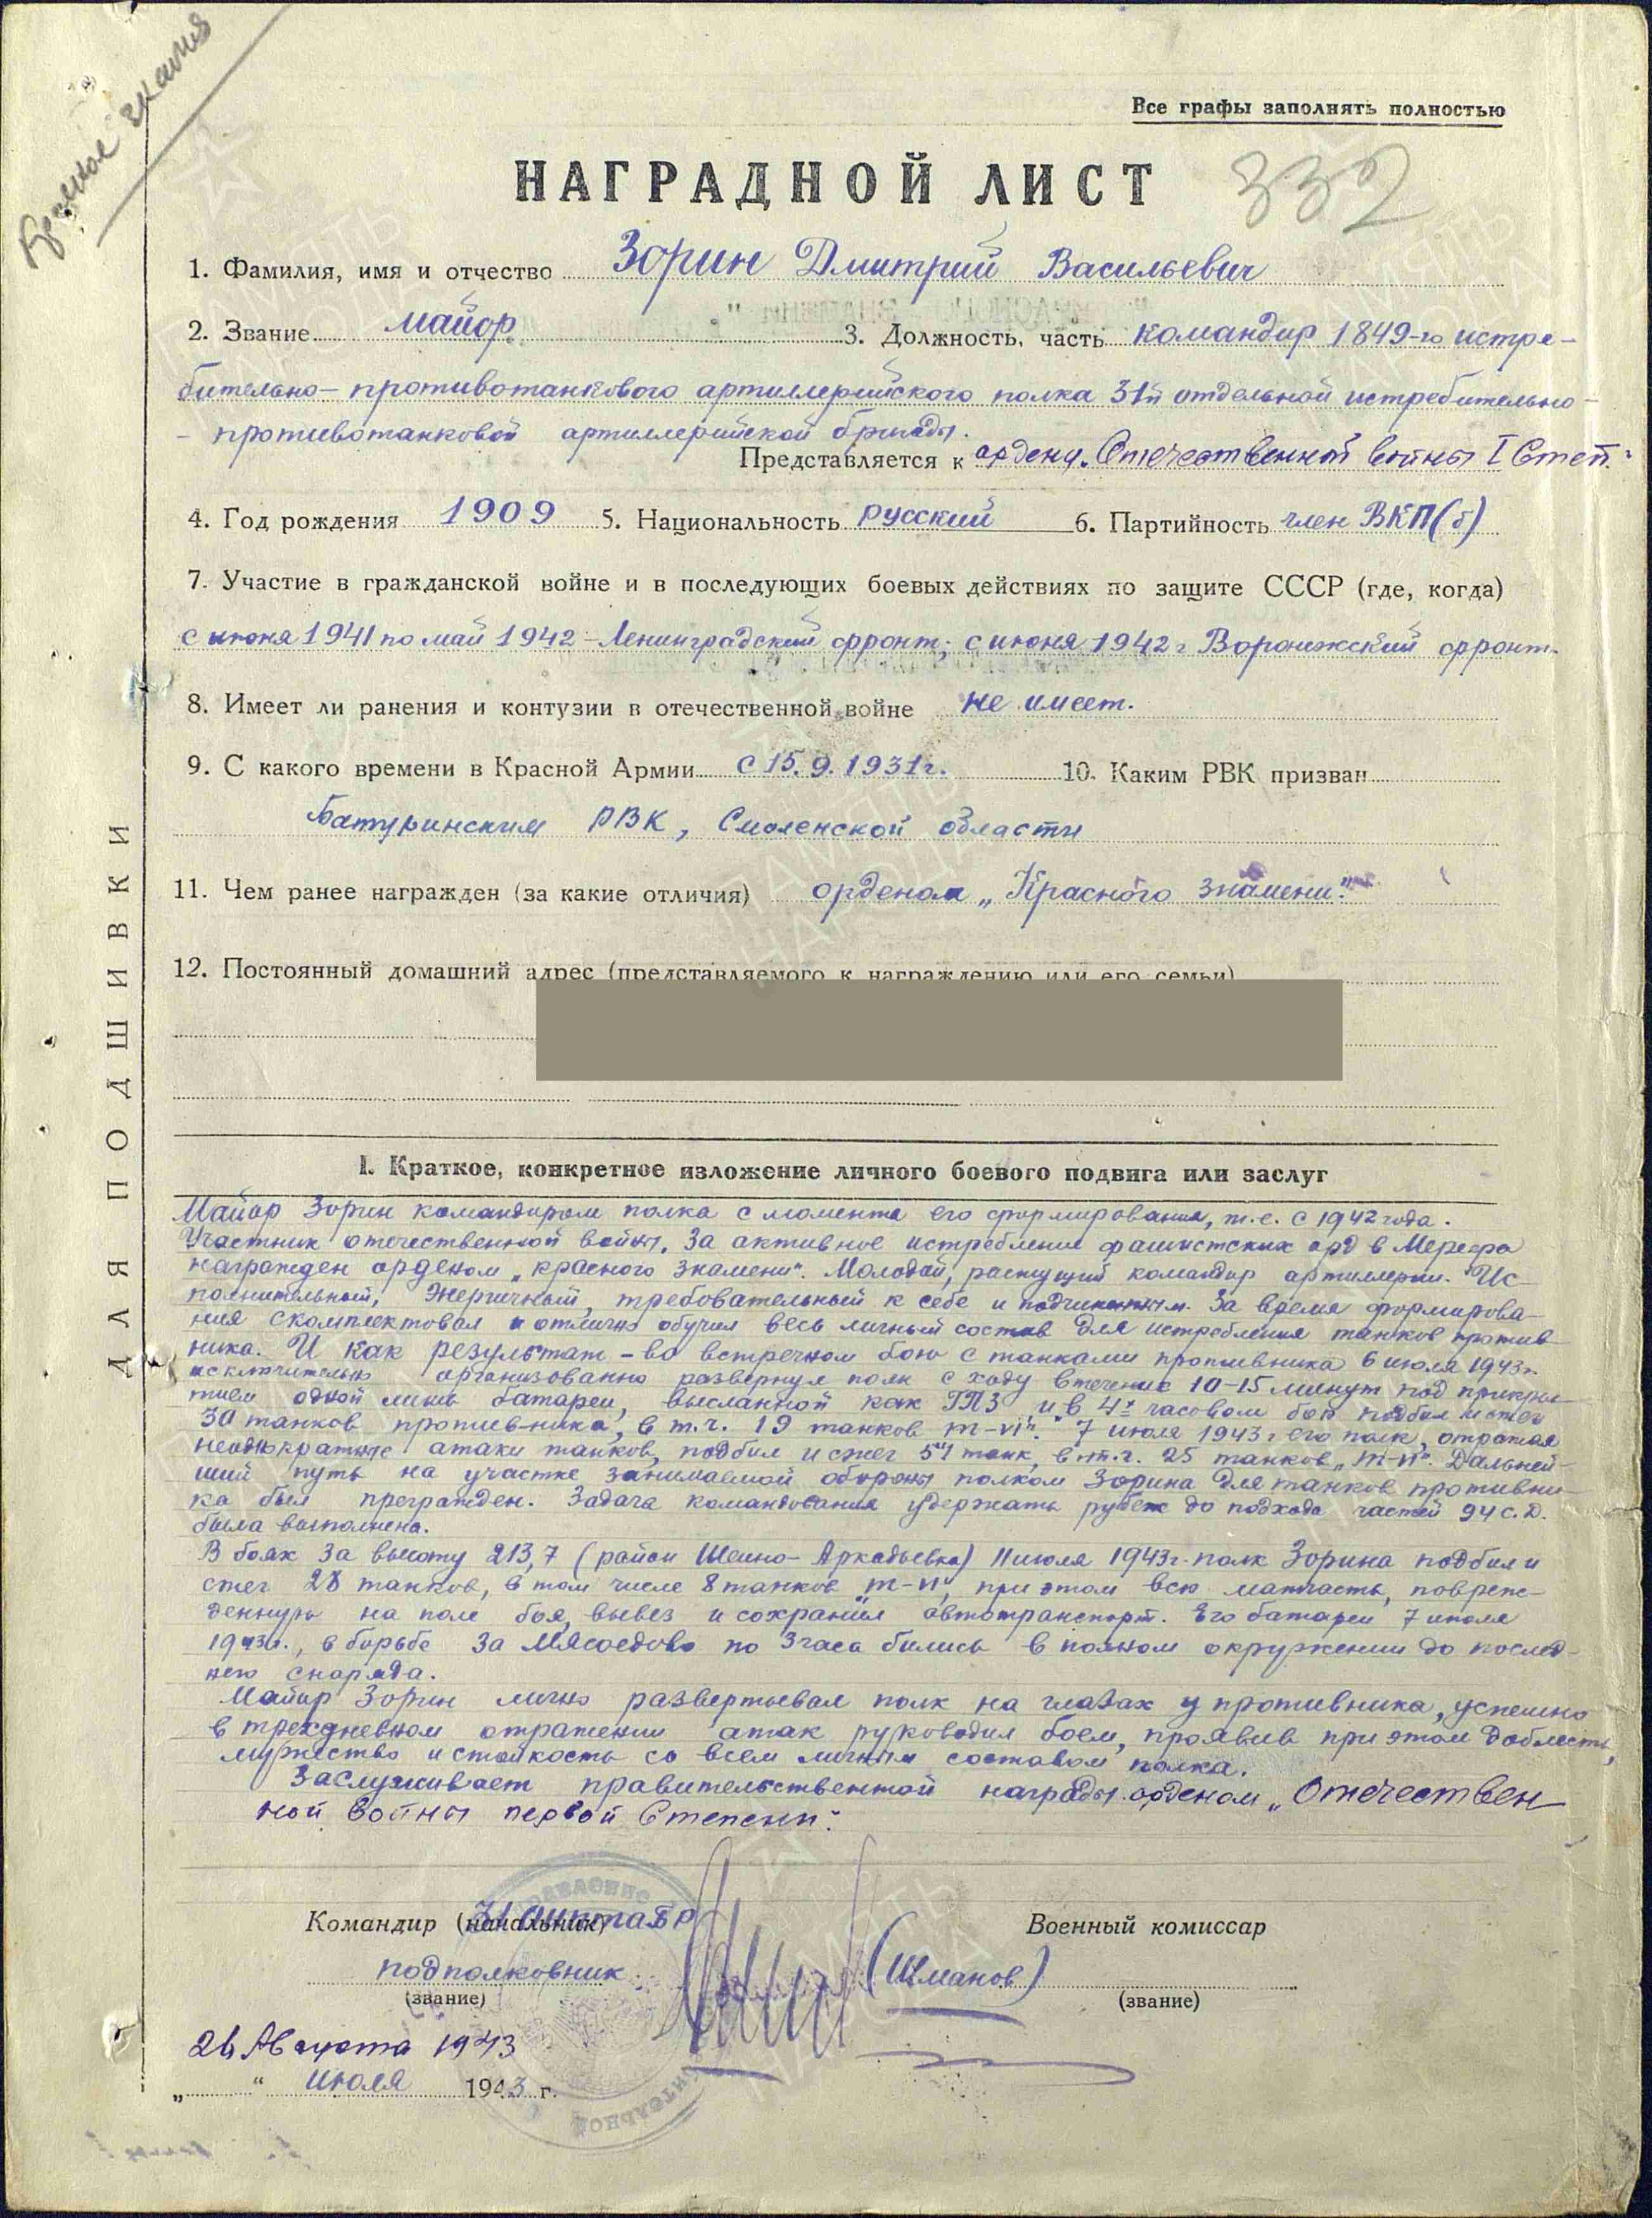 Красное знамя
Все графы заполнять полностью
НАГРАДНОЙ ЛИСТ
332
1. Фамилия, имя и отчество Зорин Дмитрий Васильевич
2. Звание майор 3. Должность, часть командир 1849-го истре-
бительно-противотанкового артиллерийского полка 31й отдельной истребительно-
-противотанковой артиллерийской бригады.
Представляется к ордену „Отечественной войны I Степ."
4. Год рождения 1909 5. Национальность русский 6. Партийность член ВКП(б)
7. Участие в гражданской войне и в последующих боевых действиях по защите СССР (где, когда)
с июня 1941 по май 1942 - Ленинградский фронт; с июня 1942 г Воронежский фронт.
8. Имеет ли ранения и контузии в отечественной войне не имеет.
9. С какого времени в Красной Армии с 15.9.1931г. 10. Каким РВК призван
Батуринским РВК, Смоленской области
11. Чем ранее награжден (за какие отличия) орденом „Красного знамени".
12. Постоянный домашний адрес (представляемого к награждению или его семьи)
ДЛЯ ПОДШИВКИ
I. Краткое, конкретное изложение личного боевого подвига или заслуг
Майор Зорин командиром полка с момента его формирования, т.е. с 1942 года.
Участник отечественной войны. За активное истребление фашистских орд в Мерефа
награжден орденом „красного знамени". Молодой, растущий командир артиллерии. Ис-
полнительный, Энергичный, требовательный к себе и подчиненным. За время формирова-
ния скомплектовал и отлично обучил весь личный состав для истребления танков против-
ника. И как результат - во встречном бою с танками противника 6 июля 1943г.
исключительно организованно развернул полк с ходу в течение 10-15 минут под прикры-
тием одной лишь батареи, высланной как ПТЗ и в 4х часовом бою подбил и сжег
30 танков противника, в т.ч. 19 танков „т-VI". 7 июля 1943 г его полк, отражая
неоднократные атаки танков, подбил и сжег 54 танк, в т.ч. 25 танков „т-VI". Дальней-
ший путь на участке занимаемой обороны полком Зорина для танков противни-
ка был прегражден. Задача командования удержать рубеж до подхода частей 94 с.д.
была выполнена.
В боях за высоту 213,7 (район Шеино-Аркадьевка) 11 июля 1943г. полк Зорина подбил и
сжег 28 танков, в том числе 8 танков „т-VI", при этом всю матчасть, повреж-
денную на поле боя, вывез и сохранил автотранспорт. Его батареи 7 июля
1943г., в борьбе за Мясоедово по 3 часа бились в полном окружении до послед-
него снаряда.
Майор Зорин лично развертывал полк на глазах у противника, успешно
в трехдневном отражении атак руководил боем, проявив при этом доблесть,
мужество и стойкость со всем личным составом полка.
Заслуживает правительственной награды орденом „Отечествен
ной войны первой Степени".
Командир (начальник) Военный комиссар
подполковник (Шманов)
(звание) (звание)
26 Августа 1943
„ " июля 1943 г.
ПАМЯТЬ НАРОДА